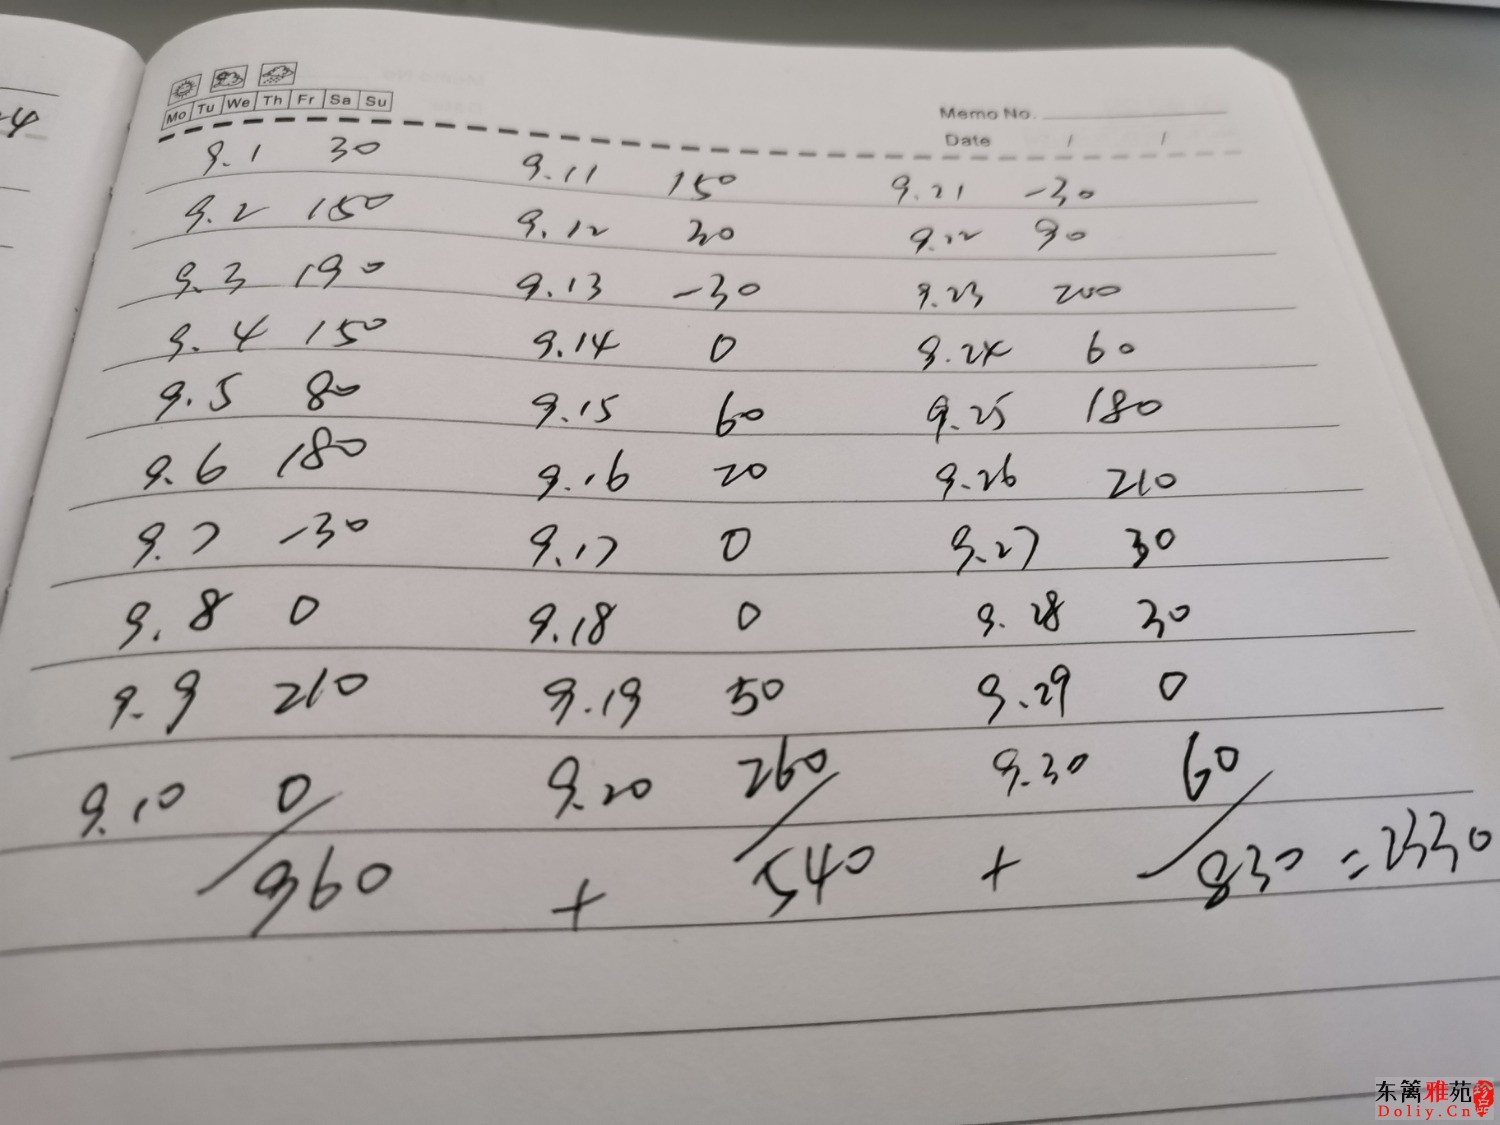 -4
Mo Tu We Th Fr Sa Su
Memo No.
Date / /
9.1 30 9.11 150 9.21 -30
9.2 150 9.12 30 9.22 90
9.3 190 9.13 -30 9.23 200
9.4 150 9.14 0 9.24 60
9.5 80 9.15 60 9.25 180
9.6 180 9.16 20 9.26 210
9.7 -30 9.17 0 9.27 30
9.8 0 9.18 0 9.28 30
9.9 210 9.19 50 9.29 0
9.10 0 9.20 260 9.30 60
960 + 540 + 830 = 2330
东篱雅苑
Doliy.Cn